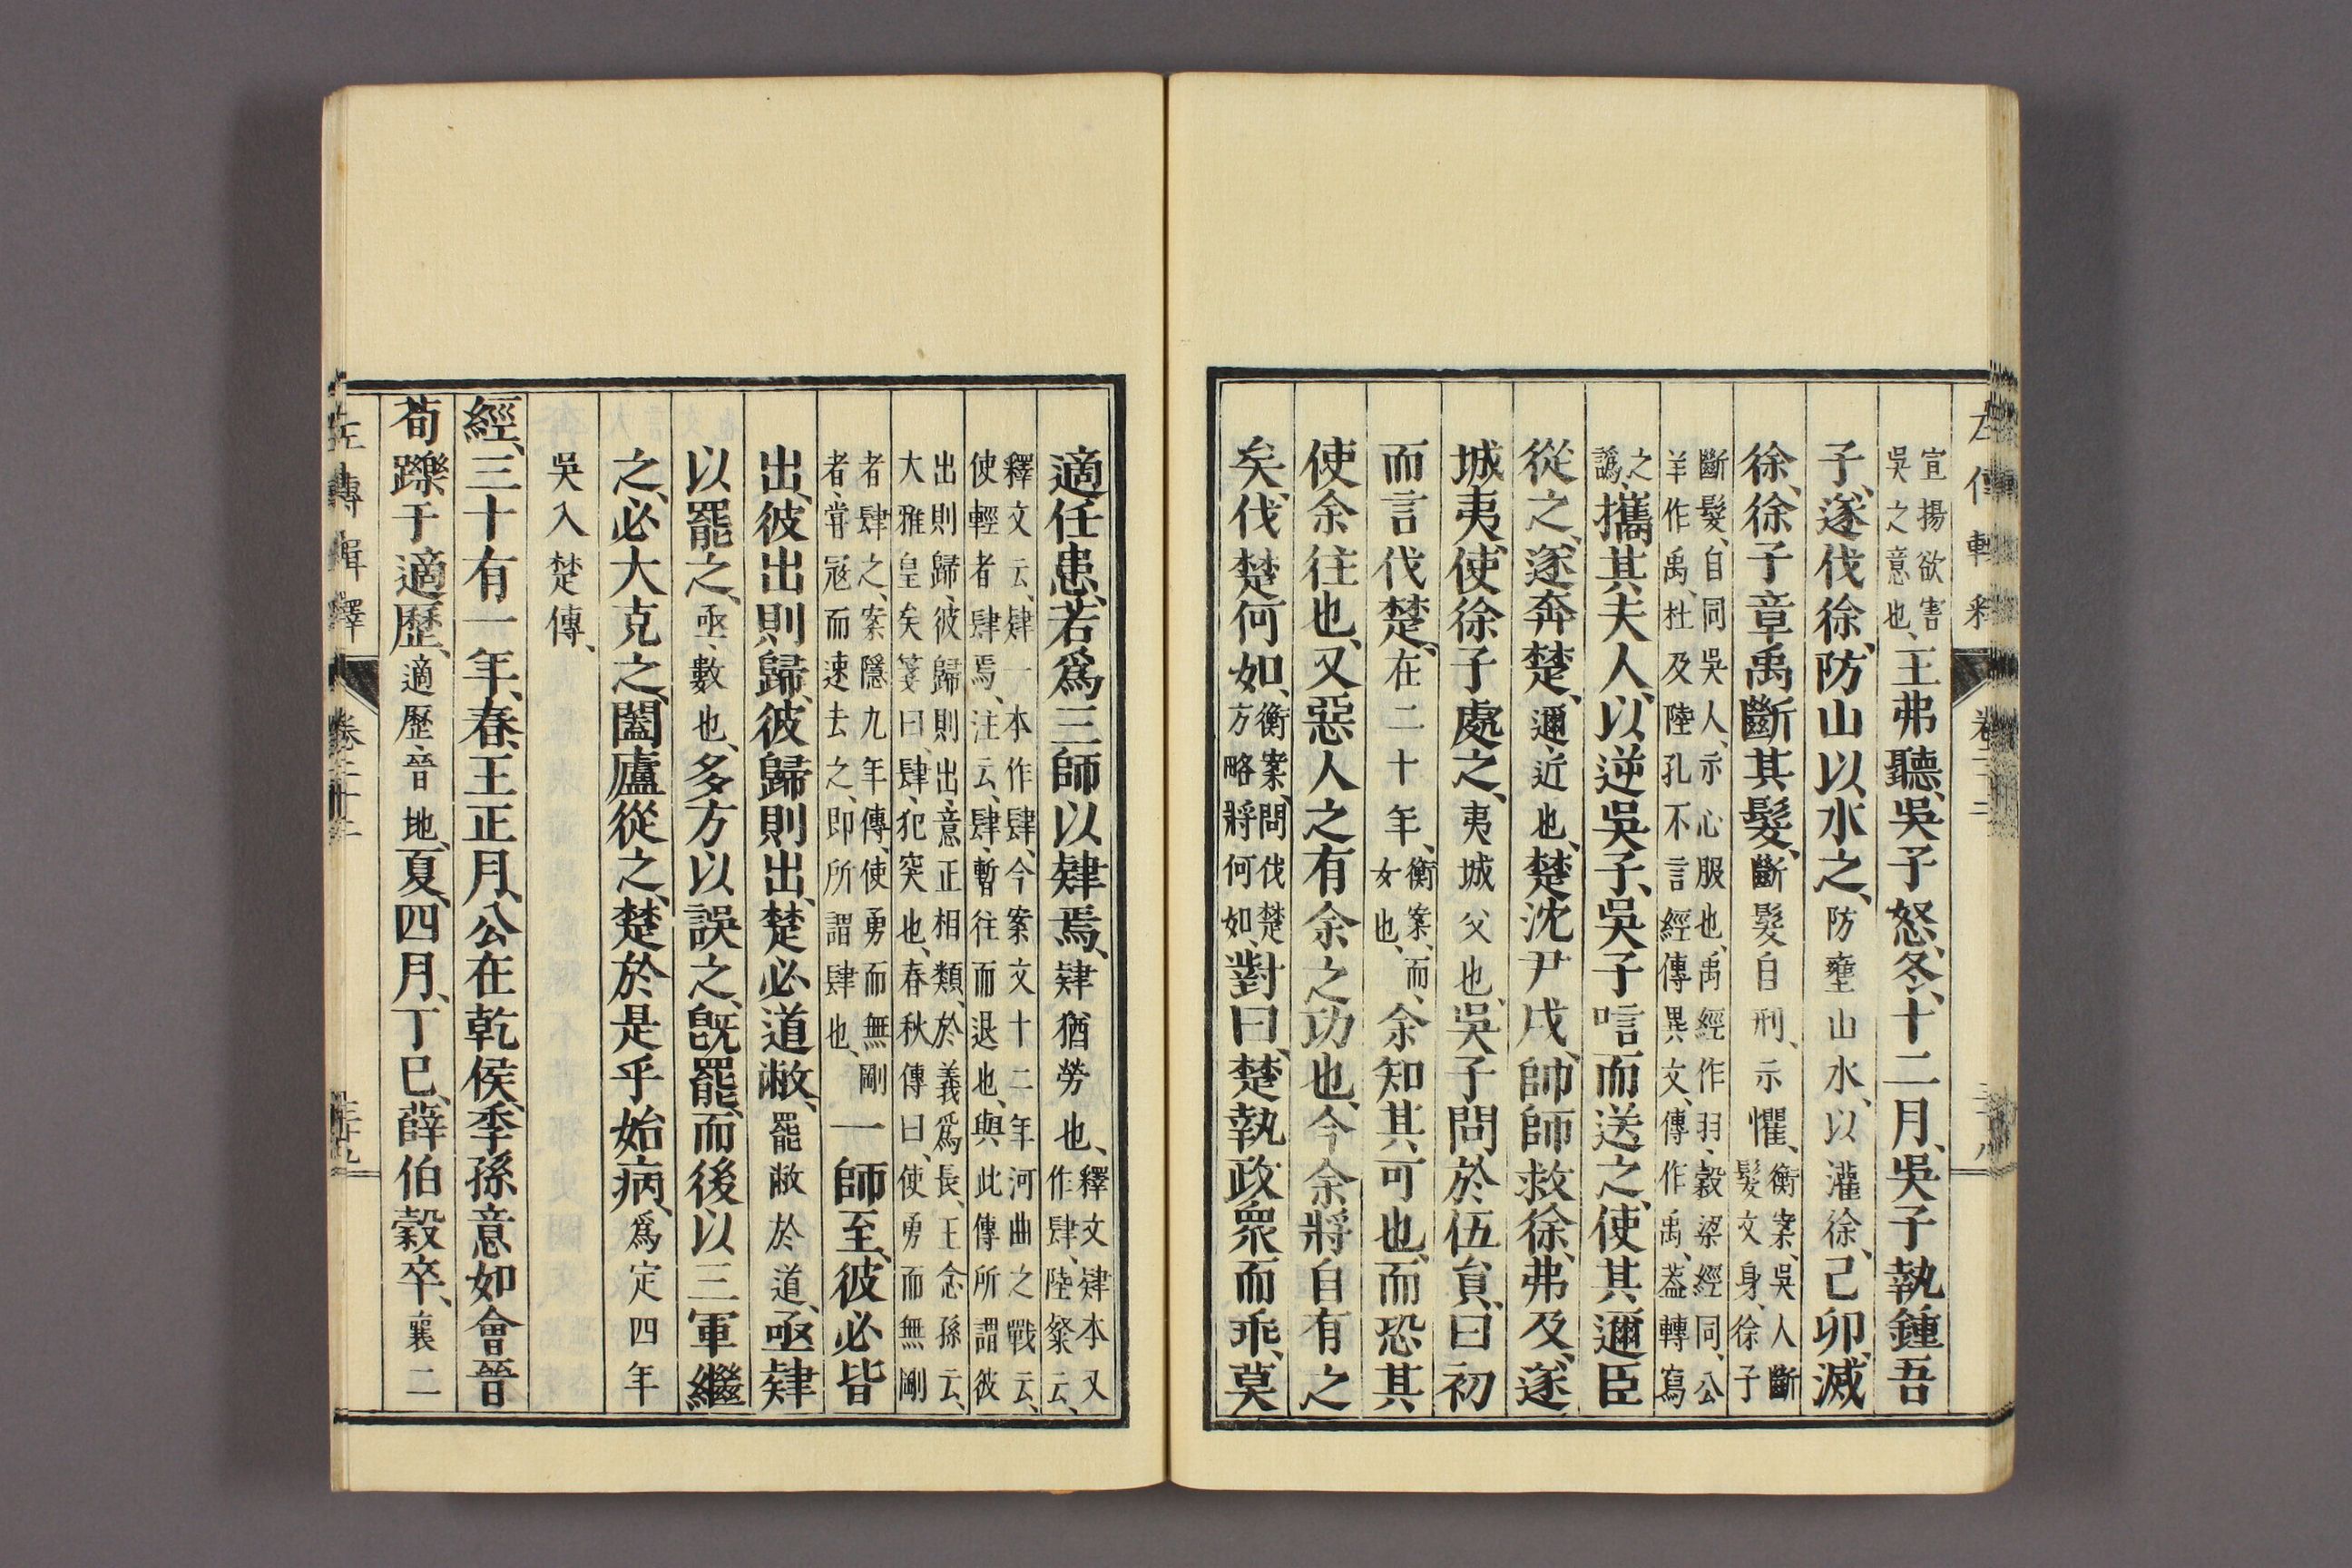 宣揚欲害
吳之意也、王弗聽、吳子怒、冬、十二月、吳子執鍾吾
子、遂伐徐、防山以水之、防壅山水、以灌徐、己卯、滅
徐、徐子章禹斷其髮、斷髮自刑、示懼、衡案、吳人斷
髮文身、徐子
斷髮、自同吳人、示心服也、禹經作羽、穀梁經同、公
羊作禹、杜及陸孔不言經傳異文、傳作禹、葢轉寫
之
譌、攜其夫人、以逆吳子、吳子唁而送之、使其邇臣
從之、遂奔楚、邇、近也、楚沈尹戌、帥師救徐、弗及、遂
城夷、使徐子處之、夷城父也、吳子問於伍員、曰、初
而言伐楚、在二十年、衡案、而、
女也、余知其可也、而恐其
使余往也、又惡人之有余之功也、今余將自有之
矣、伐楚何如、衡案、問伐楚
方略將何如、對曰、楚執政衆而乖、莫
適任患、若爲三師以肄焉、肄猶勞也、釋文肄本又
作肆、陸粲云、
釋文云、肄一本作肆、今案文十二年河曲之戰云、
使輕者肆焉、注云、肆、暫往而退也、與此傳所謂彼
出則歸、彼歸則出、意正相類、於義爲長、王念孫云、
大雅皇矣箋曰、肆、犯突也、春秋傳曰、使勇而無剛
者肆之、案隱九年傳、使勇而無剛
者、嘗寇而速去之、即所謂肆也、一師至、彼必皆
出、彼出則歸、彼歸則出、楚必道敝、罷敝於道、亟肄
以罷之、亟、數也、多方以誤之、旣罷、而後以三軍繼
之、必大克之、闔廬從之、楚於是乎始病、爲定四年
吳入楚傳、
經、三十有一年、春、王正月、公在乾侯、季孫意如會晉
荀躒于適歷、適歷、晉地、夏、四月、丁巳、薛伯穀卒、襄二
左傳輯釋
卷二十二